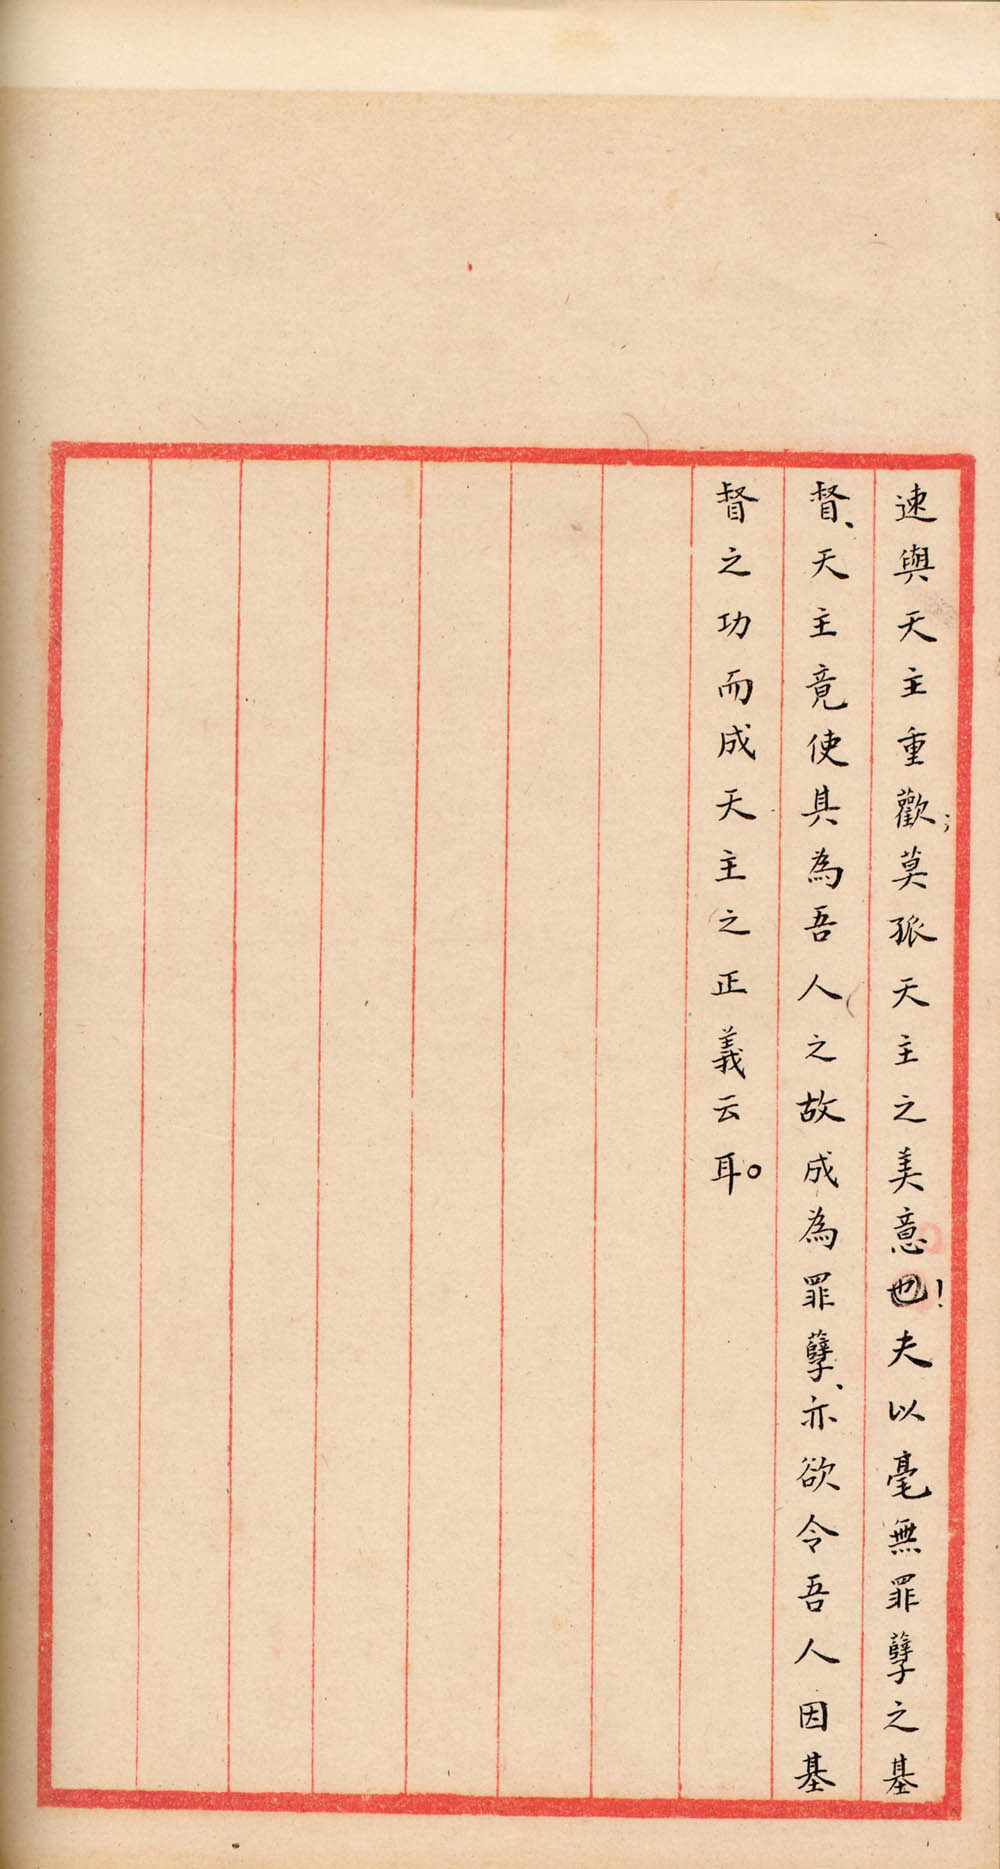 速與天主重歡；莫孤天主之美意也！夫以毫無罪孽之基
督、天主竟使具為吾人之故成為罪孽、亦欲令吾人因基
督之功而成天主之正義云耳。